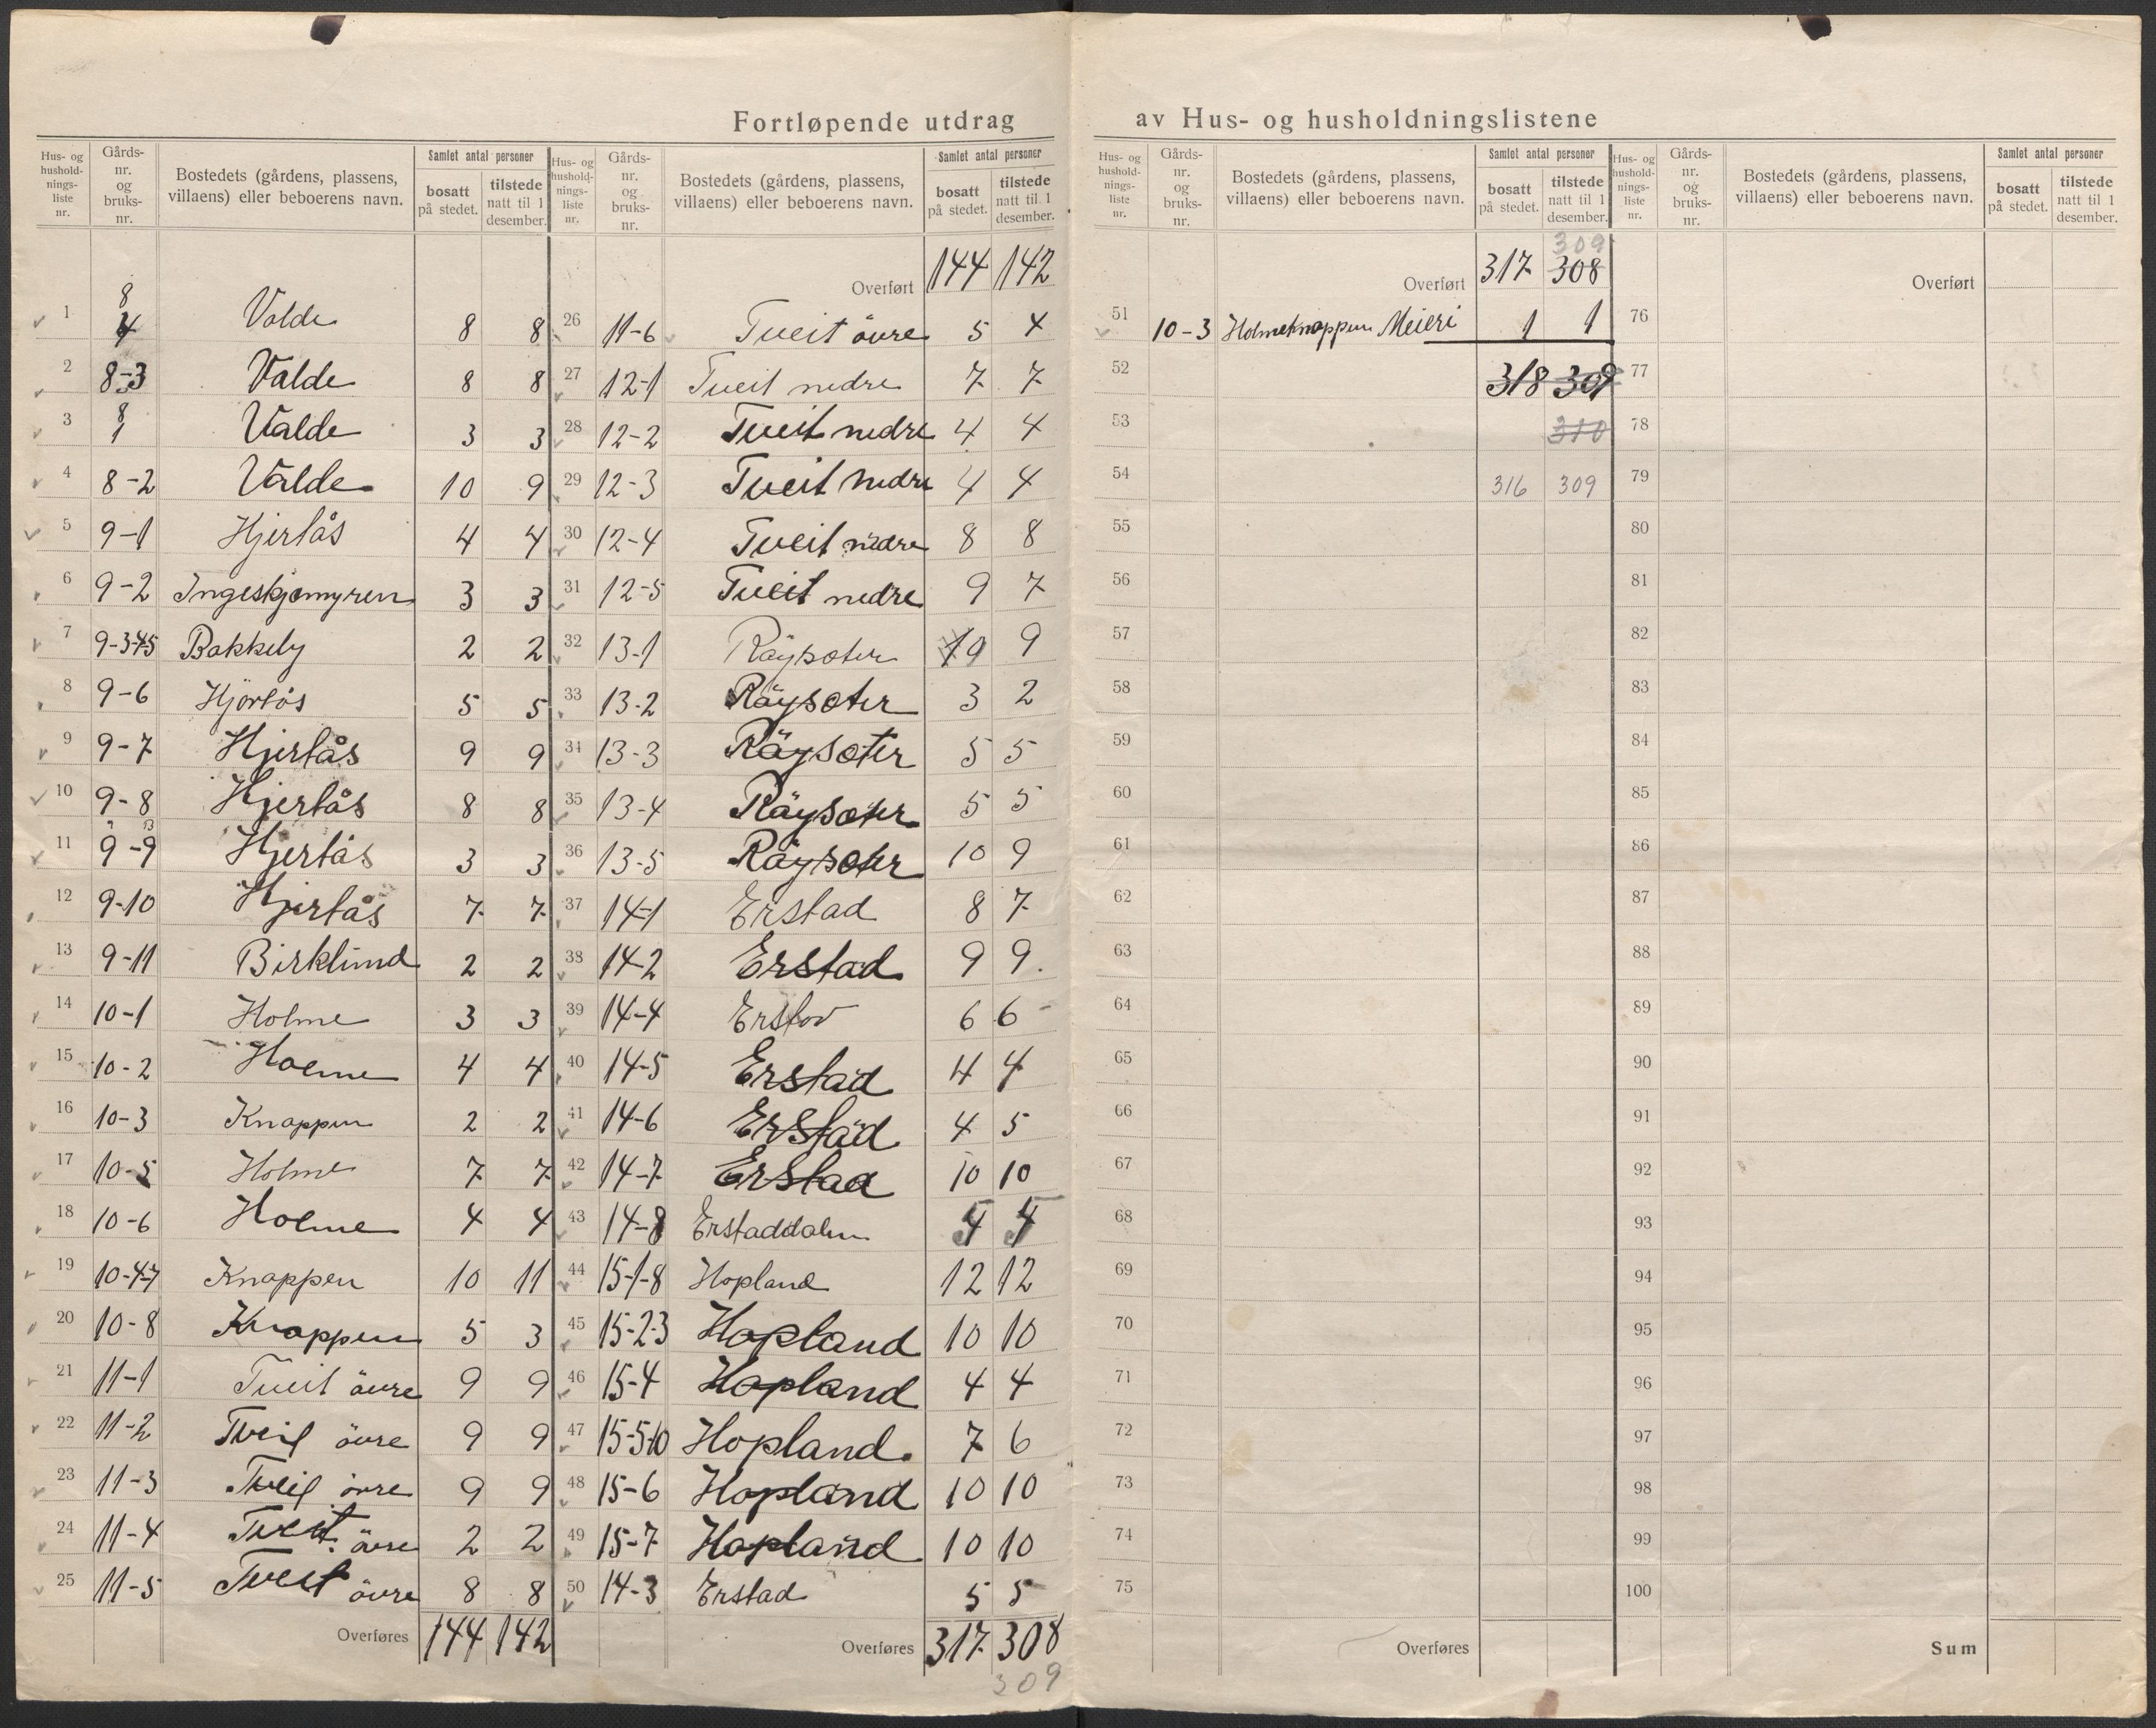 Fortløpende utdrag av Hus- og husholdningslistene
Hus- og hushold-nings-liste nr. Gårds-nr. og bruks-nr. Bostedets (gårdens, plassens, villaens) eller beboerens navn. Samlet antal personer bosatt på stedet. tilstede natt til 1 desember.
1 8 4 Valde 8 8
2 8-3 Valde 8 8
3 8 1 Valde 3 3
4 8-2 Valde 10 9
5 9-1 Hjertås 4 4
6 9-2 Ingeskjomyren 3 3
7 9-3-4-5 Bakkely 2 2
8 9-6 Hjörtås 5 5
9 9-7 Hjertås 9 9
10 9-8 Hjertås 8 8
11 9-9 Hjertås 3 3
12 9-10 Hjertås 7 7
13 9-11 Birklund 2 2
14 10-1 Holme 3 3
15 10-2 Holme 4 4
16 10-3 Knappen 2 2
17 10-5 Holme 7 7
18 10-6 Holme 4 4
19 10-4-7 Knappen 10 11
20 10-8 Knappen 5 3
21 11-1 Tveit övre 9 9
22 11-2 Tveit övre 9 9
23 11-3 Tveit övre 9 9
24 11-4 Tveit övre 2 2
25 11-5 Tveit övre 8 8
Overføres 144 142
Hus- og hushold-nings-liste nr. Gårds-nr. og bruks-nr. Bostedets (gårdens, plassens, villaens) eller beboerens navn. Samlet antal personer bosatt på stedet. tilstede natt til 1 desember.
Overført 144 142
26 11-6 Tveit övre 5 4
27 12-1 Tveit nedre 7 7
28 12-2 Tveit nedre 4 4
29 12-3 Tveit nedre 4 4
30 12-4 Tveit nedre 8 8
31 12-5 Tveit nedre 9 7
32 13-1 Räysoter 9
33 13-2 Räysoter 3 2
34 13-3 Räysoter 5 5
35 13-4 Räysoter 5 5
36 13-5 Räysoter 10 9
37 14-1 Erstad 8 7
38 14-2 Erstad 9 9
39 14-4 6 6
40 14-5 Erstad 4 4
41 14-6 Erstad 4 5
42 14-7 Erstad 10 10
43 14-8 Erstaddalen
44 15-1-8 Hopland 12 12
45 15-2-3 Hopland 10 10
46 15-4 Hopland 4 4
47 15-5-10 Hopland 7 6
48 15-6 Hopland 10 10
49 15-7 Hopland 10 10
50 14-3 Erstad 5 5
Overføres 317 308
309
Hus- og hushold-nings-liste nr. Gårds-nr. og bruks-nr. Bostedets (gårdens, plassens, villaens) eller beboerens navn. Samlet antal personer bosatt på stedet. tilstede natt til 1 desember.
309
Overført 317 308
51 10-3 Holmeknappen Meieri 1 1
52 318 309
53 310
54 316 309
55
56
57
58
59
60
61
62
63
64
65
66
67
68
69
70
71
72
73
74
75
Overføres
Hus- og hushold-nings-liste nr. Gårds-nr. og bruks-nr. Bostedets (gårdens, plassens, villaens) eller beboerens navn. Samlet antal personer bosatt på stedet. tilstede natt til 1 desember.
Overført
76
77
78
79
80
81
82
83
84
85
86
87
88
89
90
91
92
93
94
95
96
97
98
99
100
Sum